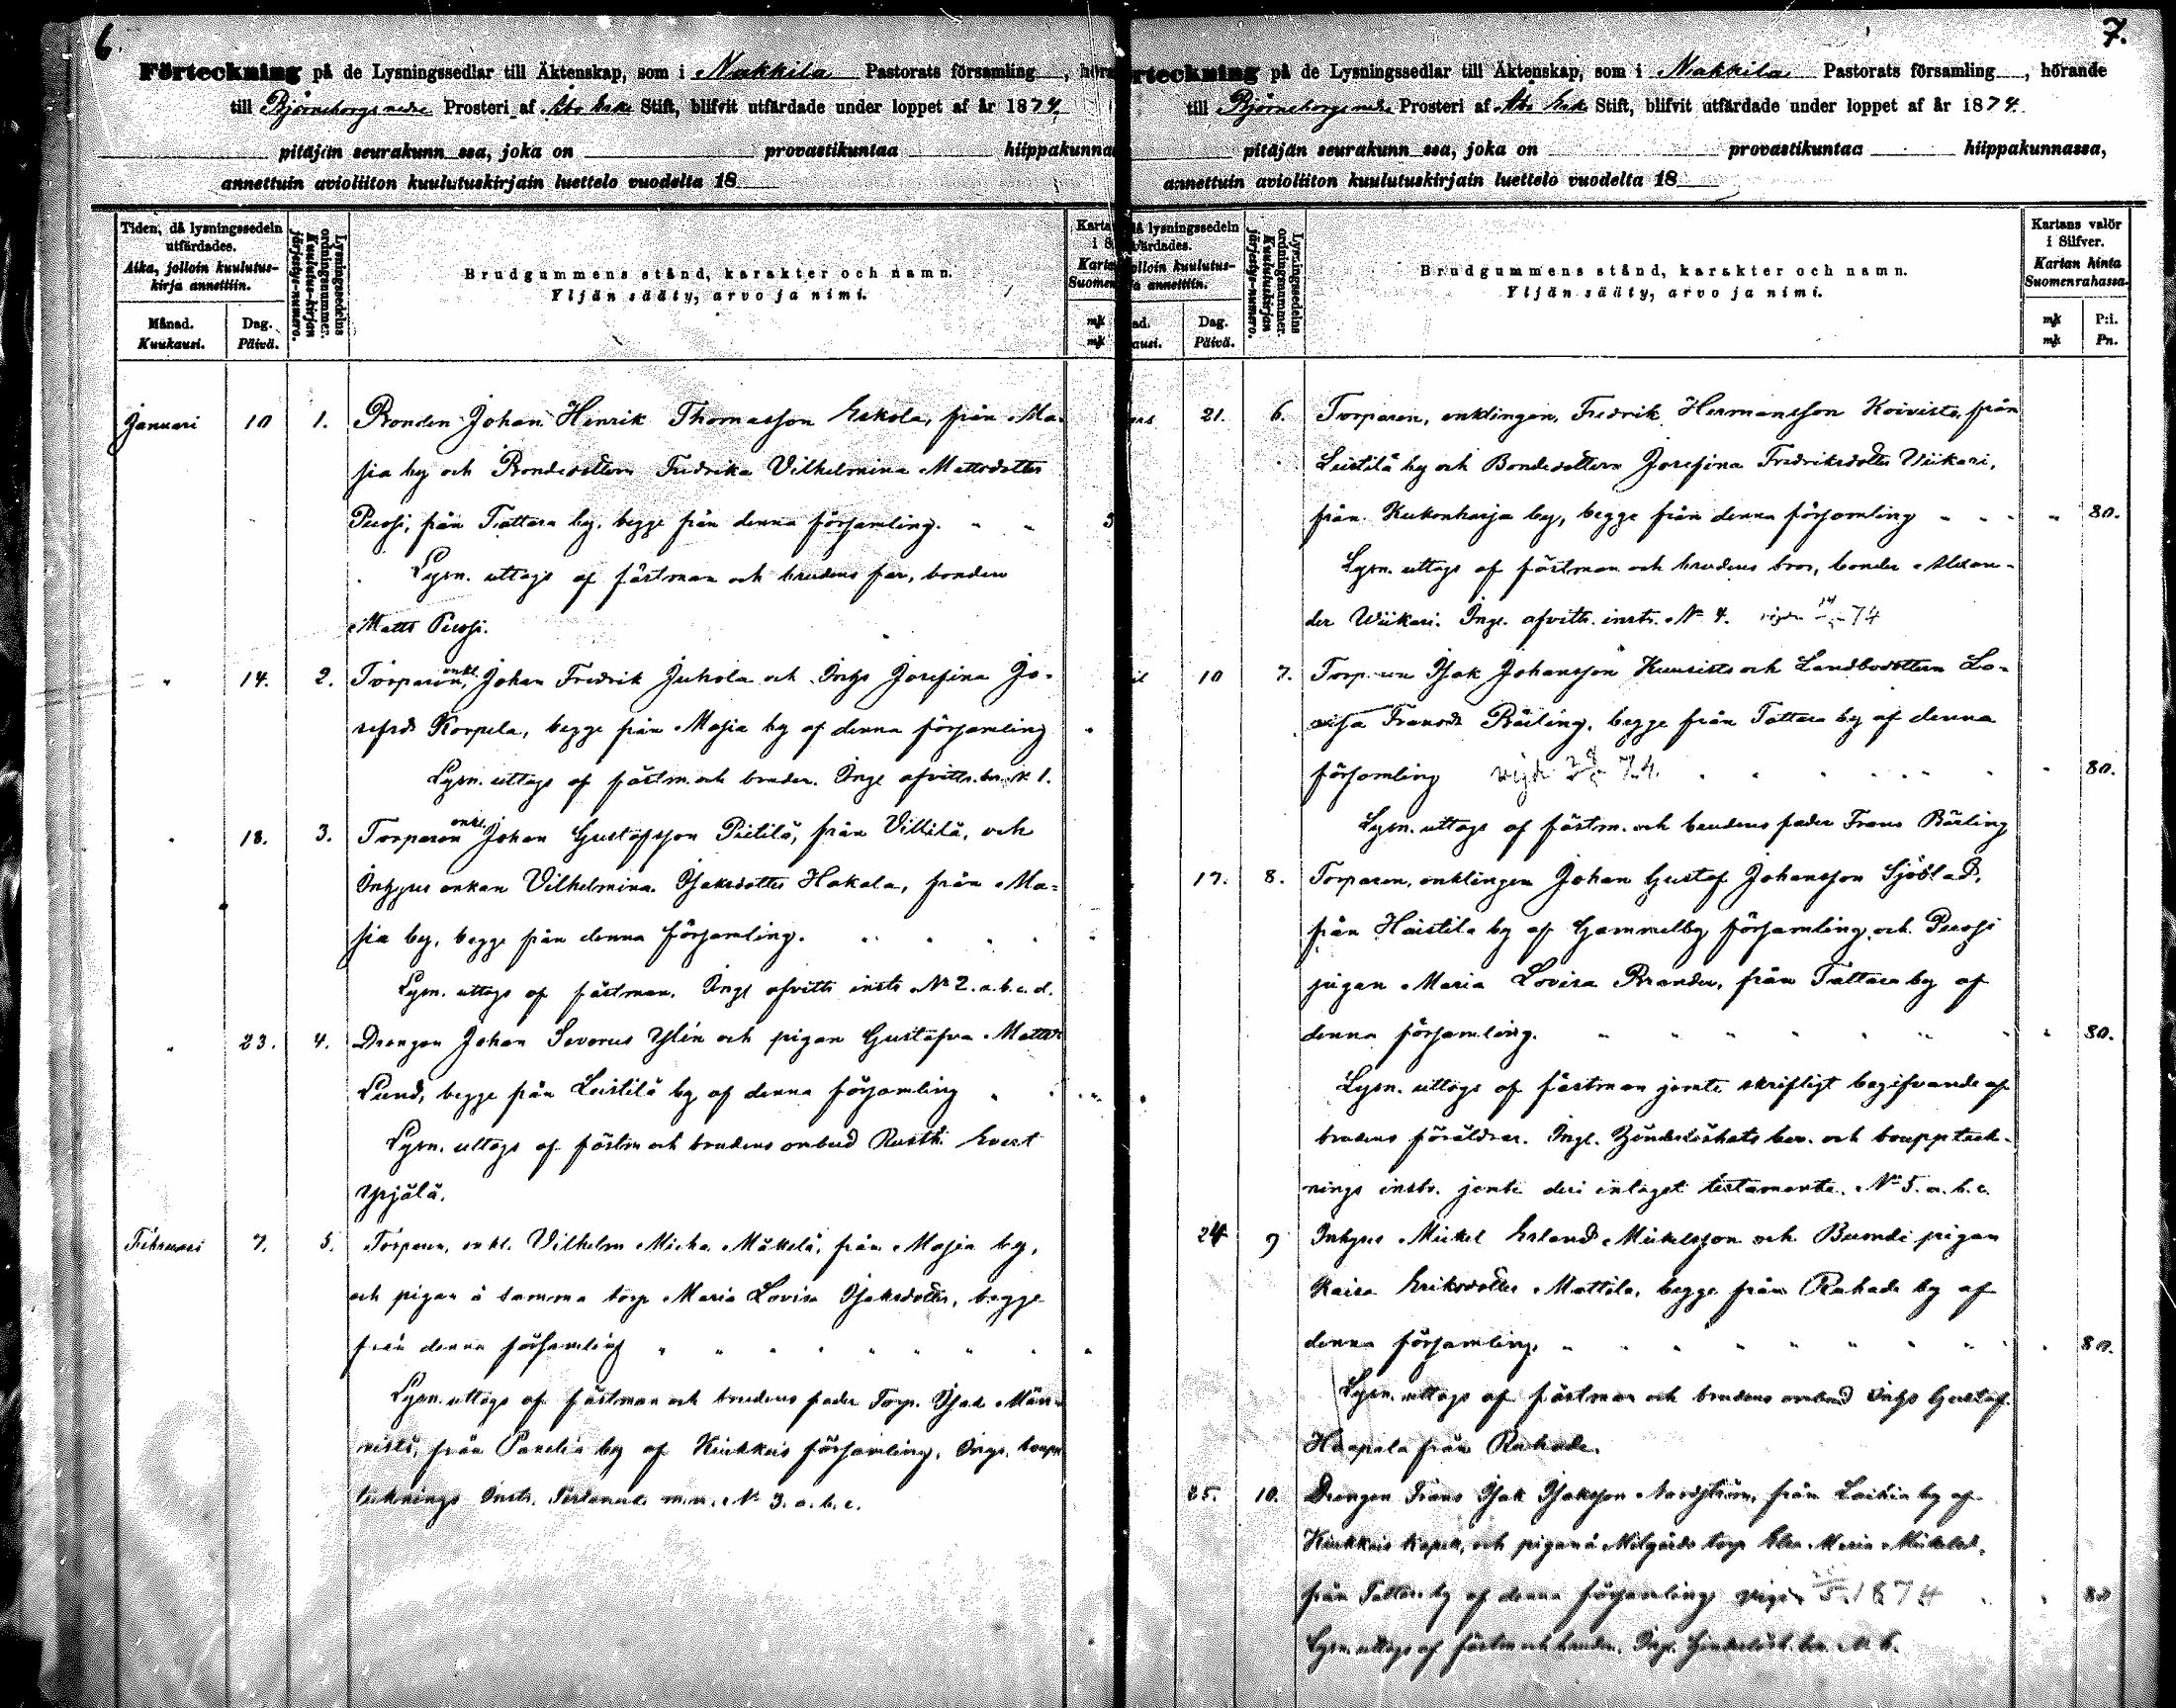 6.
Förteckning på de Lysningssedlar till Äktenskap, som i Nakkila Pastorats församling, höra
till Björneborgs nedre Prosteri af Åbo Erke Stift, blifvit utfärdade under loppet af år 1874.
pitäjän seurakunn ssa, joka on provastikuntaa hiippakunna
annettuin avioliiton kuulutuskirjain luettelo vuodelta 18
Tiden, då lysningssedeln utfärdades.
Aika, jolloin kuulutus-kirja annettiin.
Månad. Kuukausi.
Dag. Päivä.
Lysningssedelns ordningsnummer.
Kuulutus-kirjan järjestys-numero.
Brudgummens stånd, karakter och namn.
Yljän sääty, arvo ja nimi.
Januari 10 1. Bonden Johan Henrik Thomasson Eskola, från Ma-
sia by och Bondedottern Fredrika Vilhelmina Mattsdotter
Perosi, från Tattara by, begge från denna församling. " "
Lysn. uttogs af fästman och brudens far, bonden
Matts Perosi.
" 14. 2. Torparen, enkl. Johan Fredrik Juhola och Inhys Josefina Jo-
sefsd. Korpela, begge från Masia by af denna församling "
Lysn. uttogs af fästm. och bruden. Ingr afvittr. bev. N 1.
" 18. 3. Torparen enkl. Johan Gustafsson Pietilä, från Villilä, och
Inhyses enkan Vilhelmina Isaksdotter Hakala, från Ma=
sia by, begge från denna församling. " " " " "
Lysn. uttogs af fästman. Ingr afvittr instr No 2. a.b.c.d.
" 23. 4. Drengen Johan Severus Ylén och pigan Gustafva Mattsd
Lund, begge från Leistilä by af denna församling " " "
Lysn. uttogs af fästm och brudens ombud Rusth. Evert
Yrjälä.
Februari 7. 5. Torparen, enkl. Vilhelm Micha Mäkelä, från Masia by,
och pigan å samma torp Maria Lovisa Isaksdotter, begge
från denna församling " " " " " " " "
Lysn. uttogs af fästman och brudens fader Torp. Isak Män-
nistö, från Panelia by af Kiukkais församling. Ingr. boupp
teknings Instr. Testamente m.m. N 3. a.b.c.
7.
Förteckning på de Lysningssedlar till Äktenskap, som i Nakkila Pastorats församling, hörande
till Björneborgs nedre Prosteri af Åbo Erke Stift, blifvit utfärdade under loppet af år 1874.
pitäjän seurakunn ssa, joka on provastikuntaa hiippakunnassa,
annettuin avioliiton kuulutuskirjain luettelo vuodelta 18
då lysningssedeln utfärdades.
jolloin kuulutus-
annettiin.
Dag. Päivä.
Lysningssedelns ordningsnummer.
Kuulutuskirjan järjestys-numero.
Brudgummens stånd, karakter och namn.
Yljän sääty, arvo ja nimi.
Kartans valör i Silfver.
Kartan hinta Suomenrahassa.
mk P:i.
mk Pn.
21. 6. Torparen, enklingen, Fredrik Hermansson Koivisto, från
Leistilä by och Bondedottern Josefina Fredriksdotter Viikari,
från Kukonharja by, begge från denna församling " " " " 80.
Lysn. uttogs af fästman och brudens bror, bonden Alexan-
der Wiikari. Ingr. afvittr. instr. N 4. 74
10 7. Torparen Isak Johansson Kuusisto och Landbodottern Lo-
visa Fransd. Bärling, begge från Tattara by af denna
församling vigde 74. " " " " " 80.
Lysn. uttogs af fästm. och brudens fader Frans Bärling
17. 8. Torparen, enklingen Johan Gustaf Johansson Sjöblad,
från Haistila by af Gammelby församling och Perosi
pigan Maria Lovisa Brander, från Tattara by af
denna församling. " " " " " " " 80.
Lysn. uttogs af fästman jemte skriftligt begifvande af
brudens föräldrar. Ingr. hinderlöshets bev. och boupptek-
nings instr. jemte deri intaget testamente. No 5. a.b.c.
24 9 Inhyses Mickel Erland Mickelsson och Buonde pigan
Kaisa Eriksdotter Mattila, begge från Ruhade by af
denna församling. " " " " " " " " 80.
Lysn. uttogs af fästman och brudens ombud Inhys Gustaf
Haapala från Ruhade.
25. 10. Drengen Frans Isak Isaksson Nordström, från Laihia by af
Kiukkais kapell, och pigan å Milgårds torp Elsa Maria Mickelsd.
från Tattara by af denna församling vigde 1874 " " 80
Lysn. uttogs af fästm och bruden. Ingr. hinderlösh. bev. N 6.